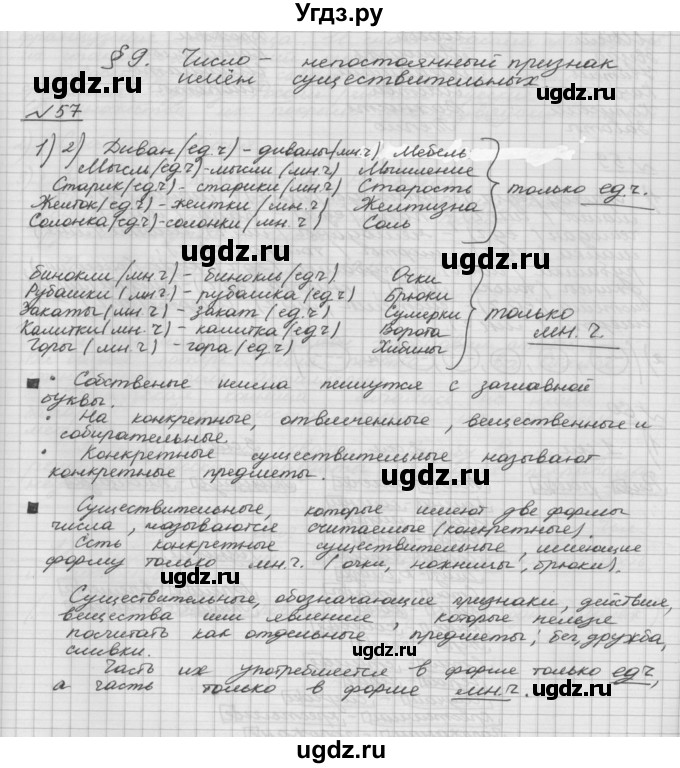 Угдз.ру
§ 9. Число – непостоянный признак
имён существительных
ugdz.ru ugdz.ru
№57
1) 2) Диван (ед.ч) – диваны (мн.ч) Мебель
Мысль (ед.ч) – мысли (мн.ч) Мышление
Старик (ед.ч) – старики (мн.ч) Старость } только ед.ч.
Желток (ед.ч) – желтки (мн.ч) Желтизна
Солонка (ед.ч) – солонки (мн.ч) Соль
ugdz.ru
Бинокли (мн.ч) – бинокль (ед.ч) Очки
Рубашки (мн.ч) – рубашка (ед.ч) Брюки
Закаты (мн.ч) – закат (ед.ч) Сумерки } только
Калитки (мн.ч) – калитка (ед.ч) Ворота мн.ч.
Горы (мн.ч) – гора (ед.ч) Хибины
ugdz.ru ugdz.ru
• Собственые имена пишутся с заглавной
буквы.
• На конкретные, отвлеченные, вещественные и
собирательные.
• Конкретные существительные называют
конкретные предметы.
ugdz.ru
Существительные, которые имеют две формы
числа, называются считаемые (конкретные).
Есть конкретные существительные, имеющие
форму только мн.ч. (очки, ножницы, брюки).
ugdz.ru
Существительные, обозначающие признаки, действия,
вещества или явления, которые нельзя
посчитать как отдельные предметы; бег, дружба,
сливки.
Часть их употребляется в форме только ед.ч,
а часть только в форме мн.ч.
ugdz.ru ugdz.ru
ugdz.ru